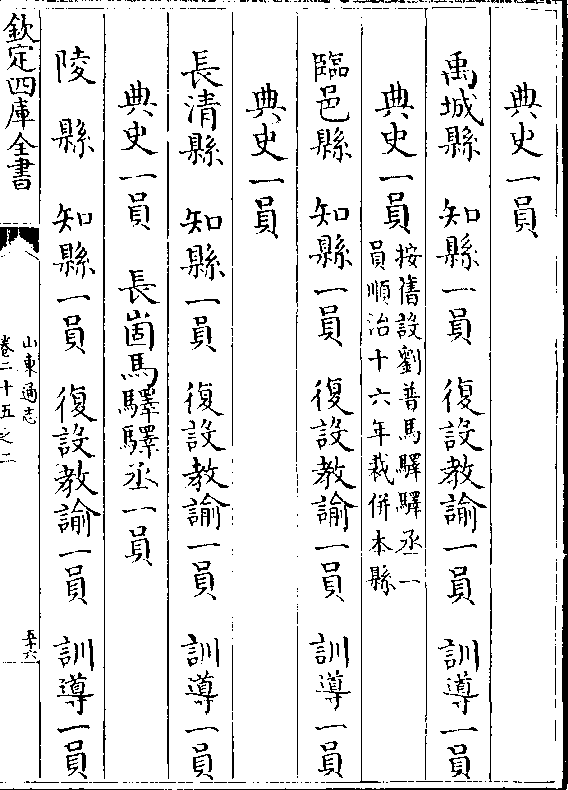 典史一員
禹城縣 知縣一員 復設教諭一員 訓導一員
典史一員 按舊設劉普馬驛驛丞一
員順治十六年裁併本縣
臨邑縣 知縣一員 復設教諭一員 訓導一員
典史一員
長清縣 知縣一員 復設教諭一員 訓導一員
典史一員 長崮馬驛驛丞一員
陵縣 知縣一員 復設教諭一員 訓導一員
欽定四庫全書
山東通志
卷二十五之二
五十六